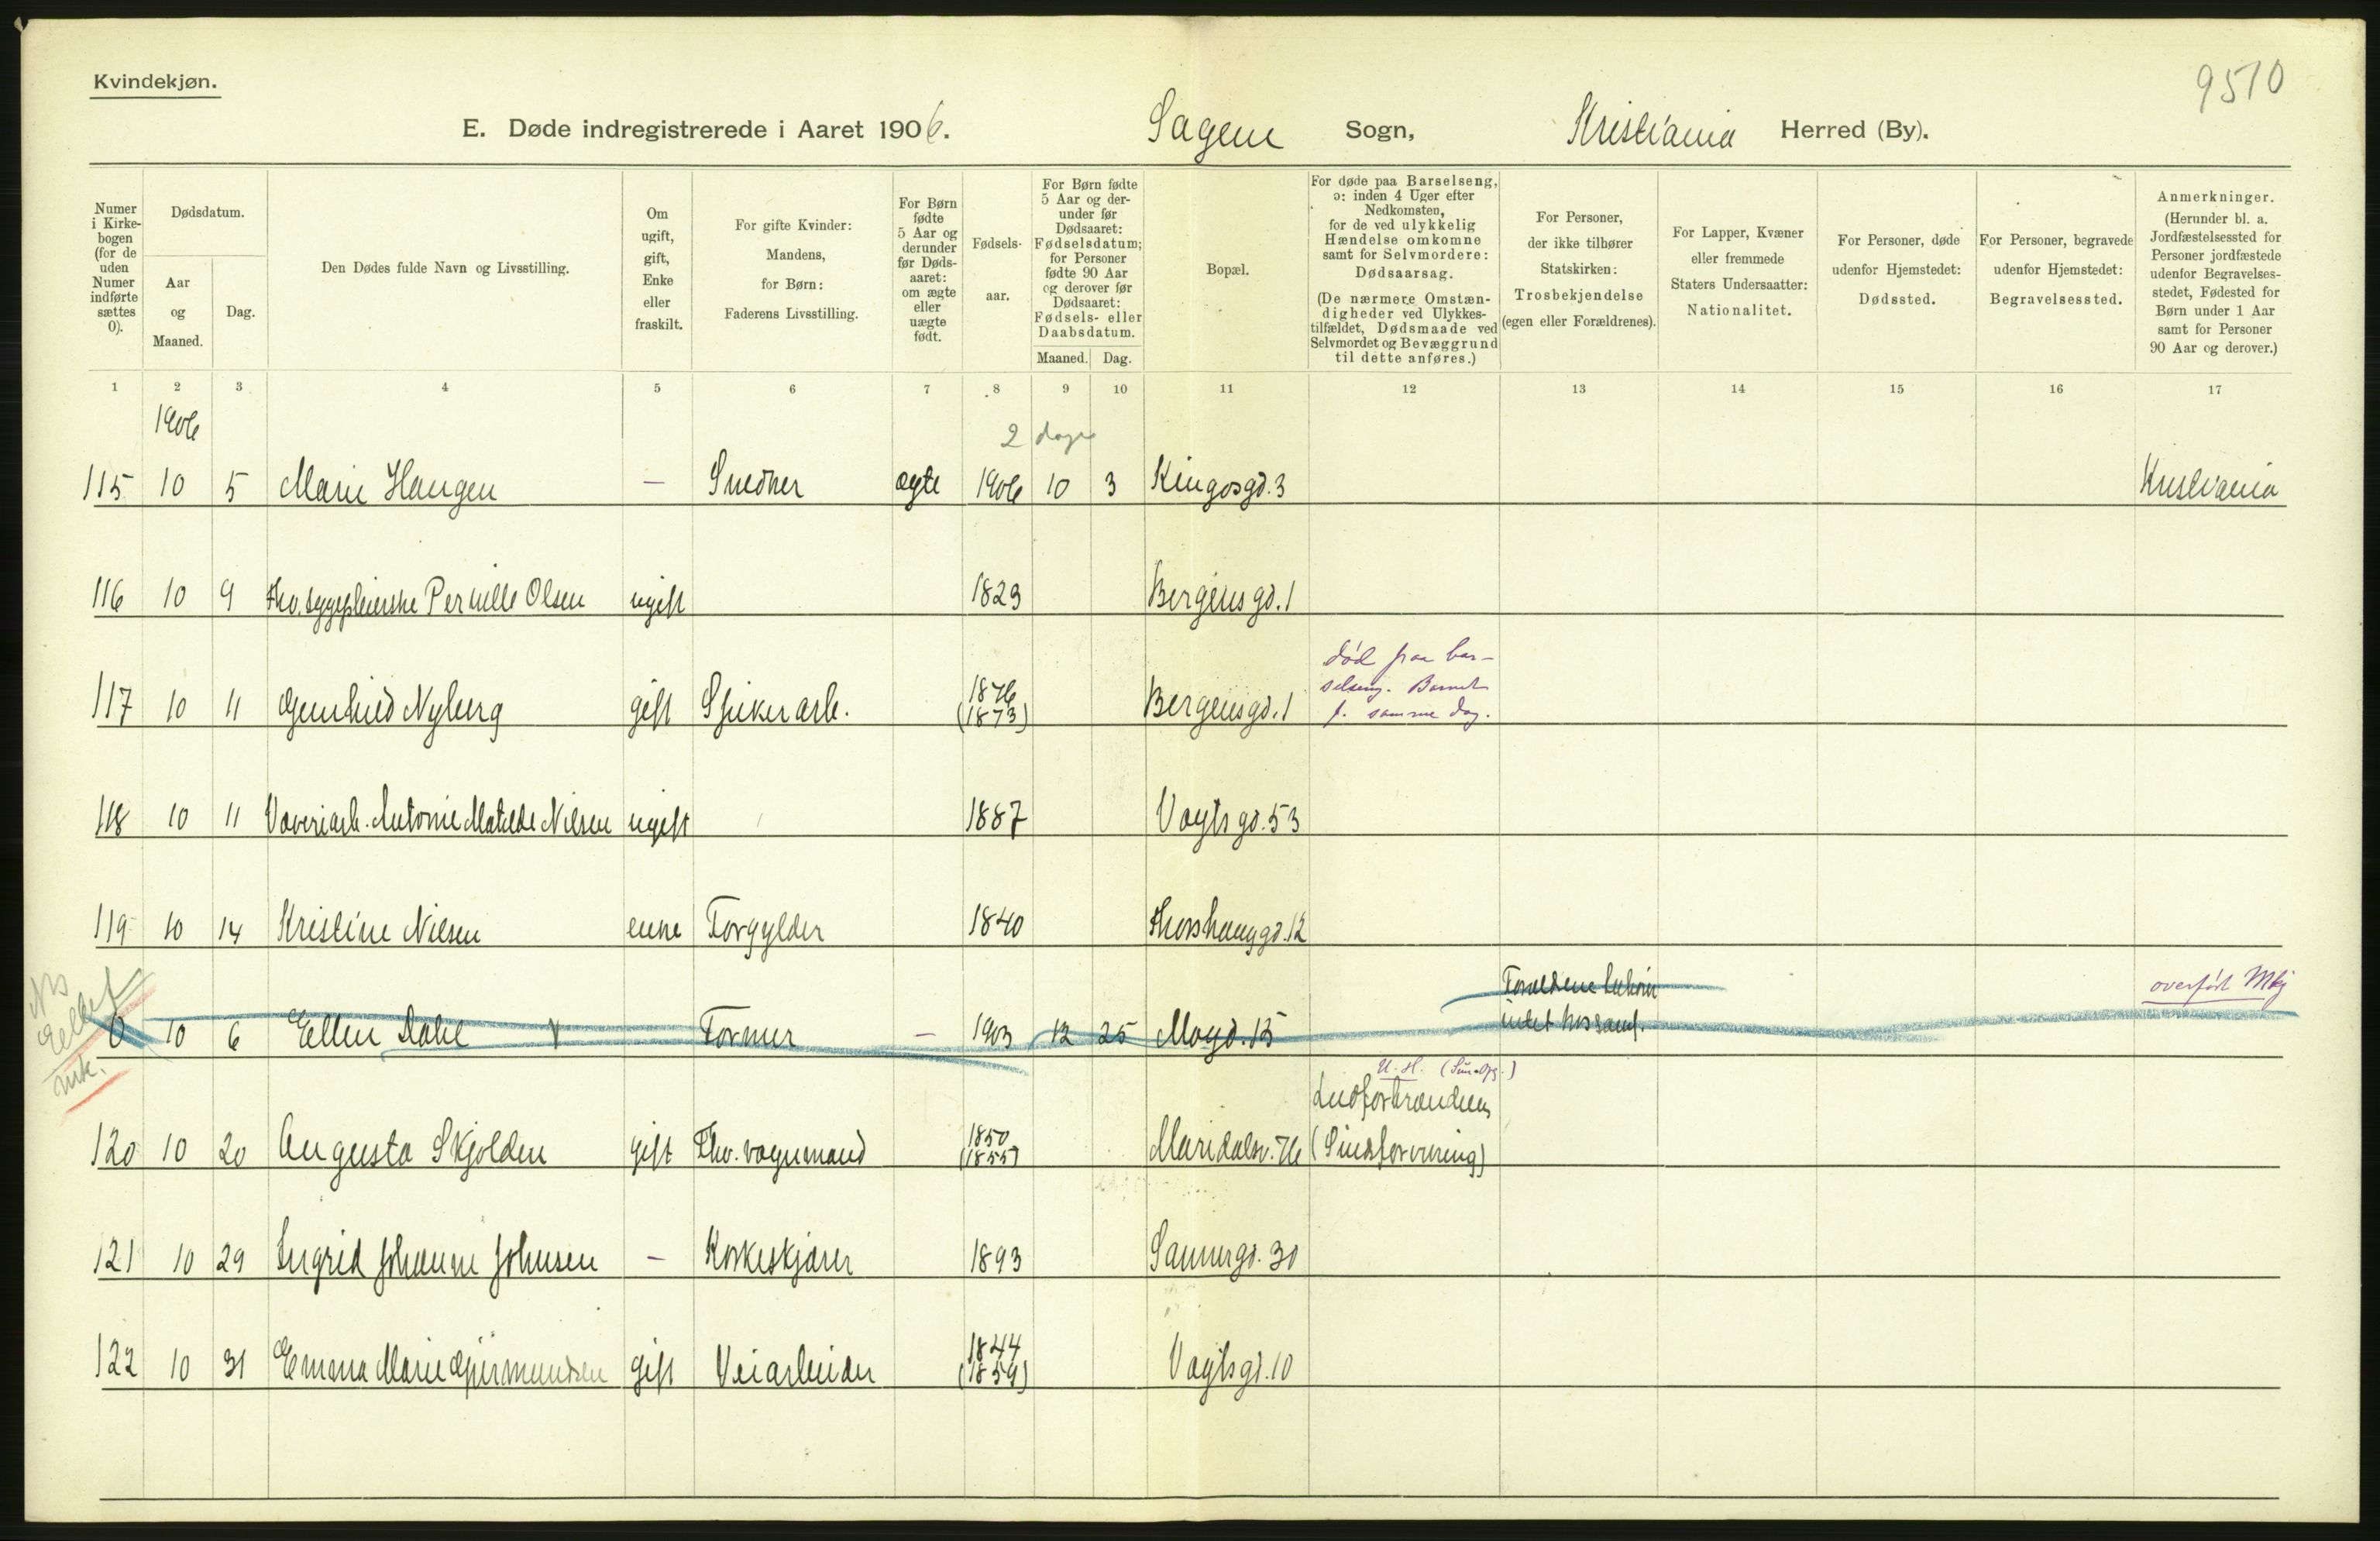 Kvindekjøn.
9510
E. Døde indregistrerede i Aaret 1906. Sagene Sogn, Kristiania Herred (By).
Numer i Kirkebogen (for de uden Numer indførte sættes 0).
Dødsdatum.
Aar og Maaned.
Dag.
Den Dødes fulde Navn og Livsstilling.
Om ugift, gift, Enke eller fraskilt.
For gifte Kvinder: Mandens, for Børn: Faderens Livsstilling.
For Børn fødte 5 Aar og derunder før Dødsaaret: om ægte eller uægte født.
Fødselsaar.
For Børn fødte 5 Aar og derunder før Dødsaaret: Fødselsdatum; for Personer fødte 90 Aar og derover før Dødsaaret: Fødsels- eller Daabsdatum.
Maaned. Dag.
Bopæl.
For døde paa Barselseng, ɔ: inden 4 Uger efter Nedkomsten, for de ved ulykkelig Hændelse omkomne samt for Selvmordere: Dødsaarsag.
(De nærmere Omstændigheder ved Ulykkestilfældet, Dødsmaade ved Selvmordet og Bevæggrund til dette anføres.)
For Personer, der ikke tilhører Statskirken: Trosbekjendelse (egen eller Forældrenes).
For Lapper, Kvæner eller fremmede Staters Undersaatter: Nationalitet.
For Personer, døde udenfor Hjemstedet: Dødssted.
For Personer, begravede udenfor Hjemstedet: Begravelsessted.
Anmerkninger.
(Herunder bl. a. Jordfæstelsessted for Personer jordfæstede udenfor Begravelsesstedet, Fødested for Børn under 1 Aar samt for Personer 90 Aar og derover.)
1 2 3 4 5 6 7 8 9 10 11 12 13 14 15 16 17
1906
2 dage
115 10 5 Marie Haugen — Snedker ægte 1906 10 3 Kingosgd. 3 Kristiania
116 10 9 Fhv. sygepleierske Pernille Olsen ugift 1823 Bergensgd. 1
død paa bar-
selseng. Barnet
f. samme dag.
1876
117 10 11 Gunhild Nyberg gift Spikerarb. (1873) Bergensgd. 1
118 10 11 Væveriarb. Antonie Matilde Nilsen ugift 1887 Vogtsgd. 53
119 10 14 Kristine Nilsen enke Forgylder 1840 Thorshauggd. 12
Forældrene tilhører
intet kossamf.
overført Mkj
0 10 6 Ellen Dahl Former — 1903 12 25 Mogd. 15
U. H. (Sin-)
Lud
1850
120 10 20 Augusta Skjolden gift Fhv. vognmand (1855) Maridalsv. 76 (Sindsforvirring)
121 10 29 Ingrid Johanne Johnsen — Korkeskjærer 1893 Sannergd. 30
1844
122 10 31 Emma Marie Gjermundsen gift Veiarbeider (1859) Vogtsgd. 10